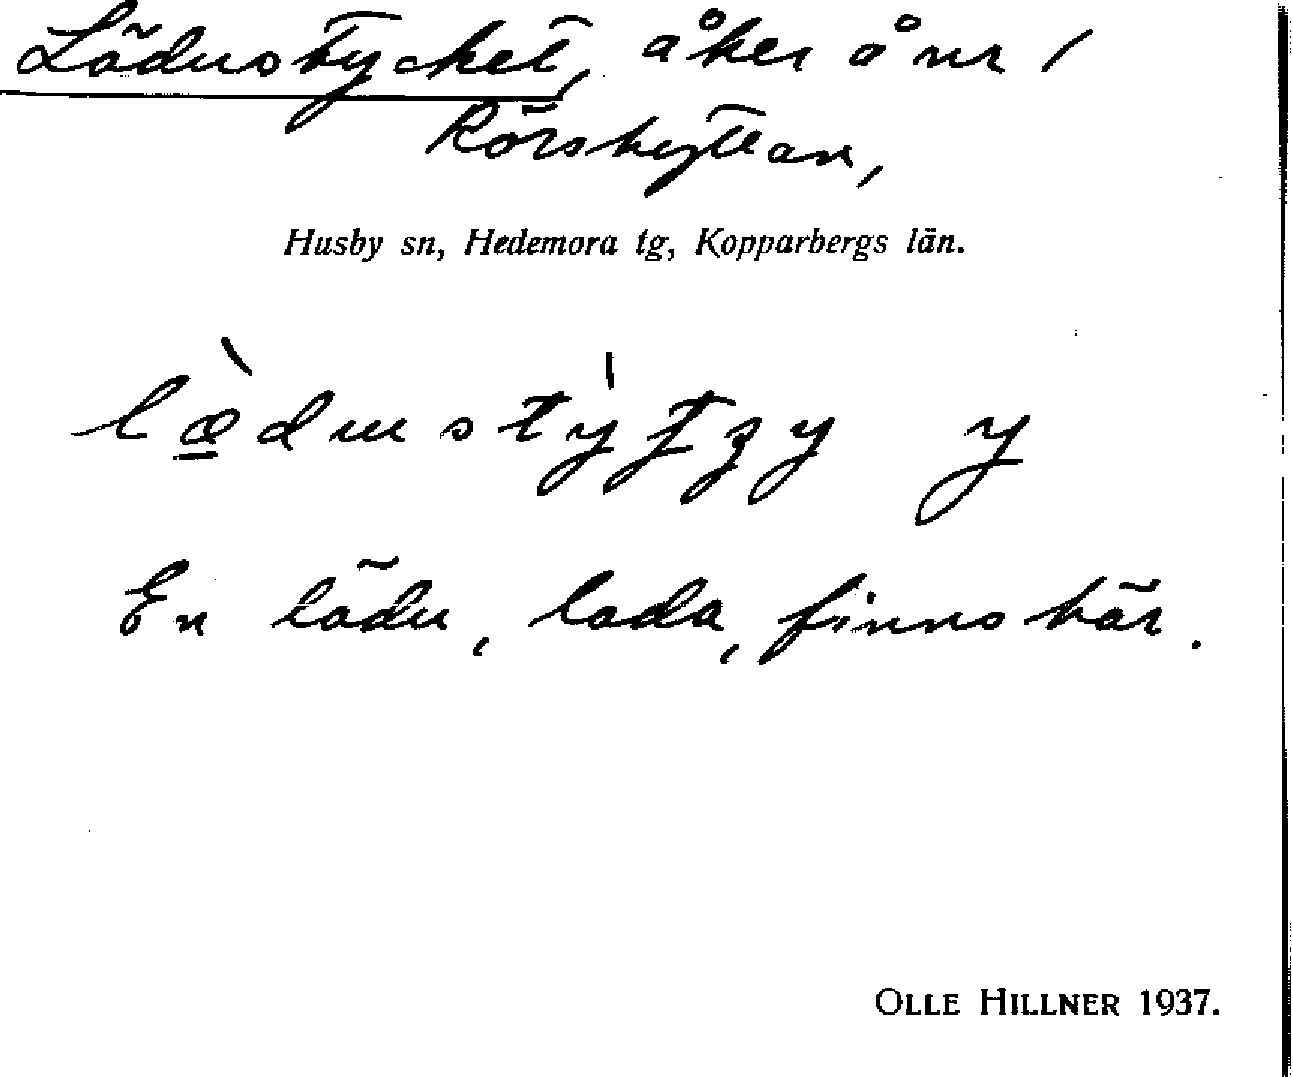 Lädustycket, åker å nr 1
Rörshyttan,
Husby sn, Hedemora tg, Kopparbergs län.
En lädu, lada, finns här.
OLLE HILLNER 1937.